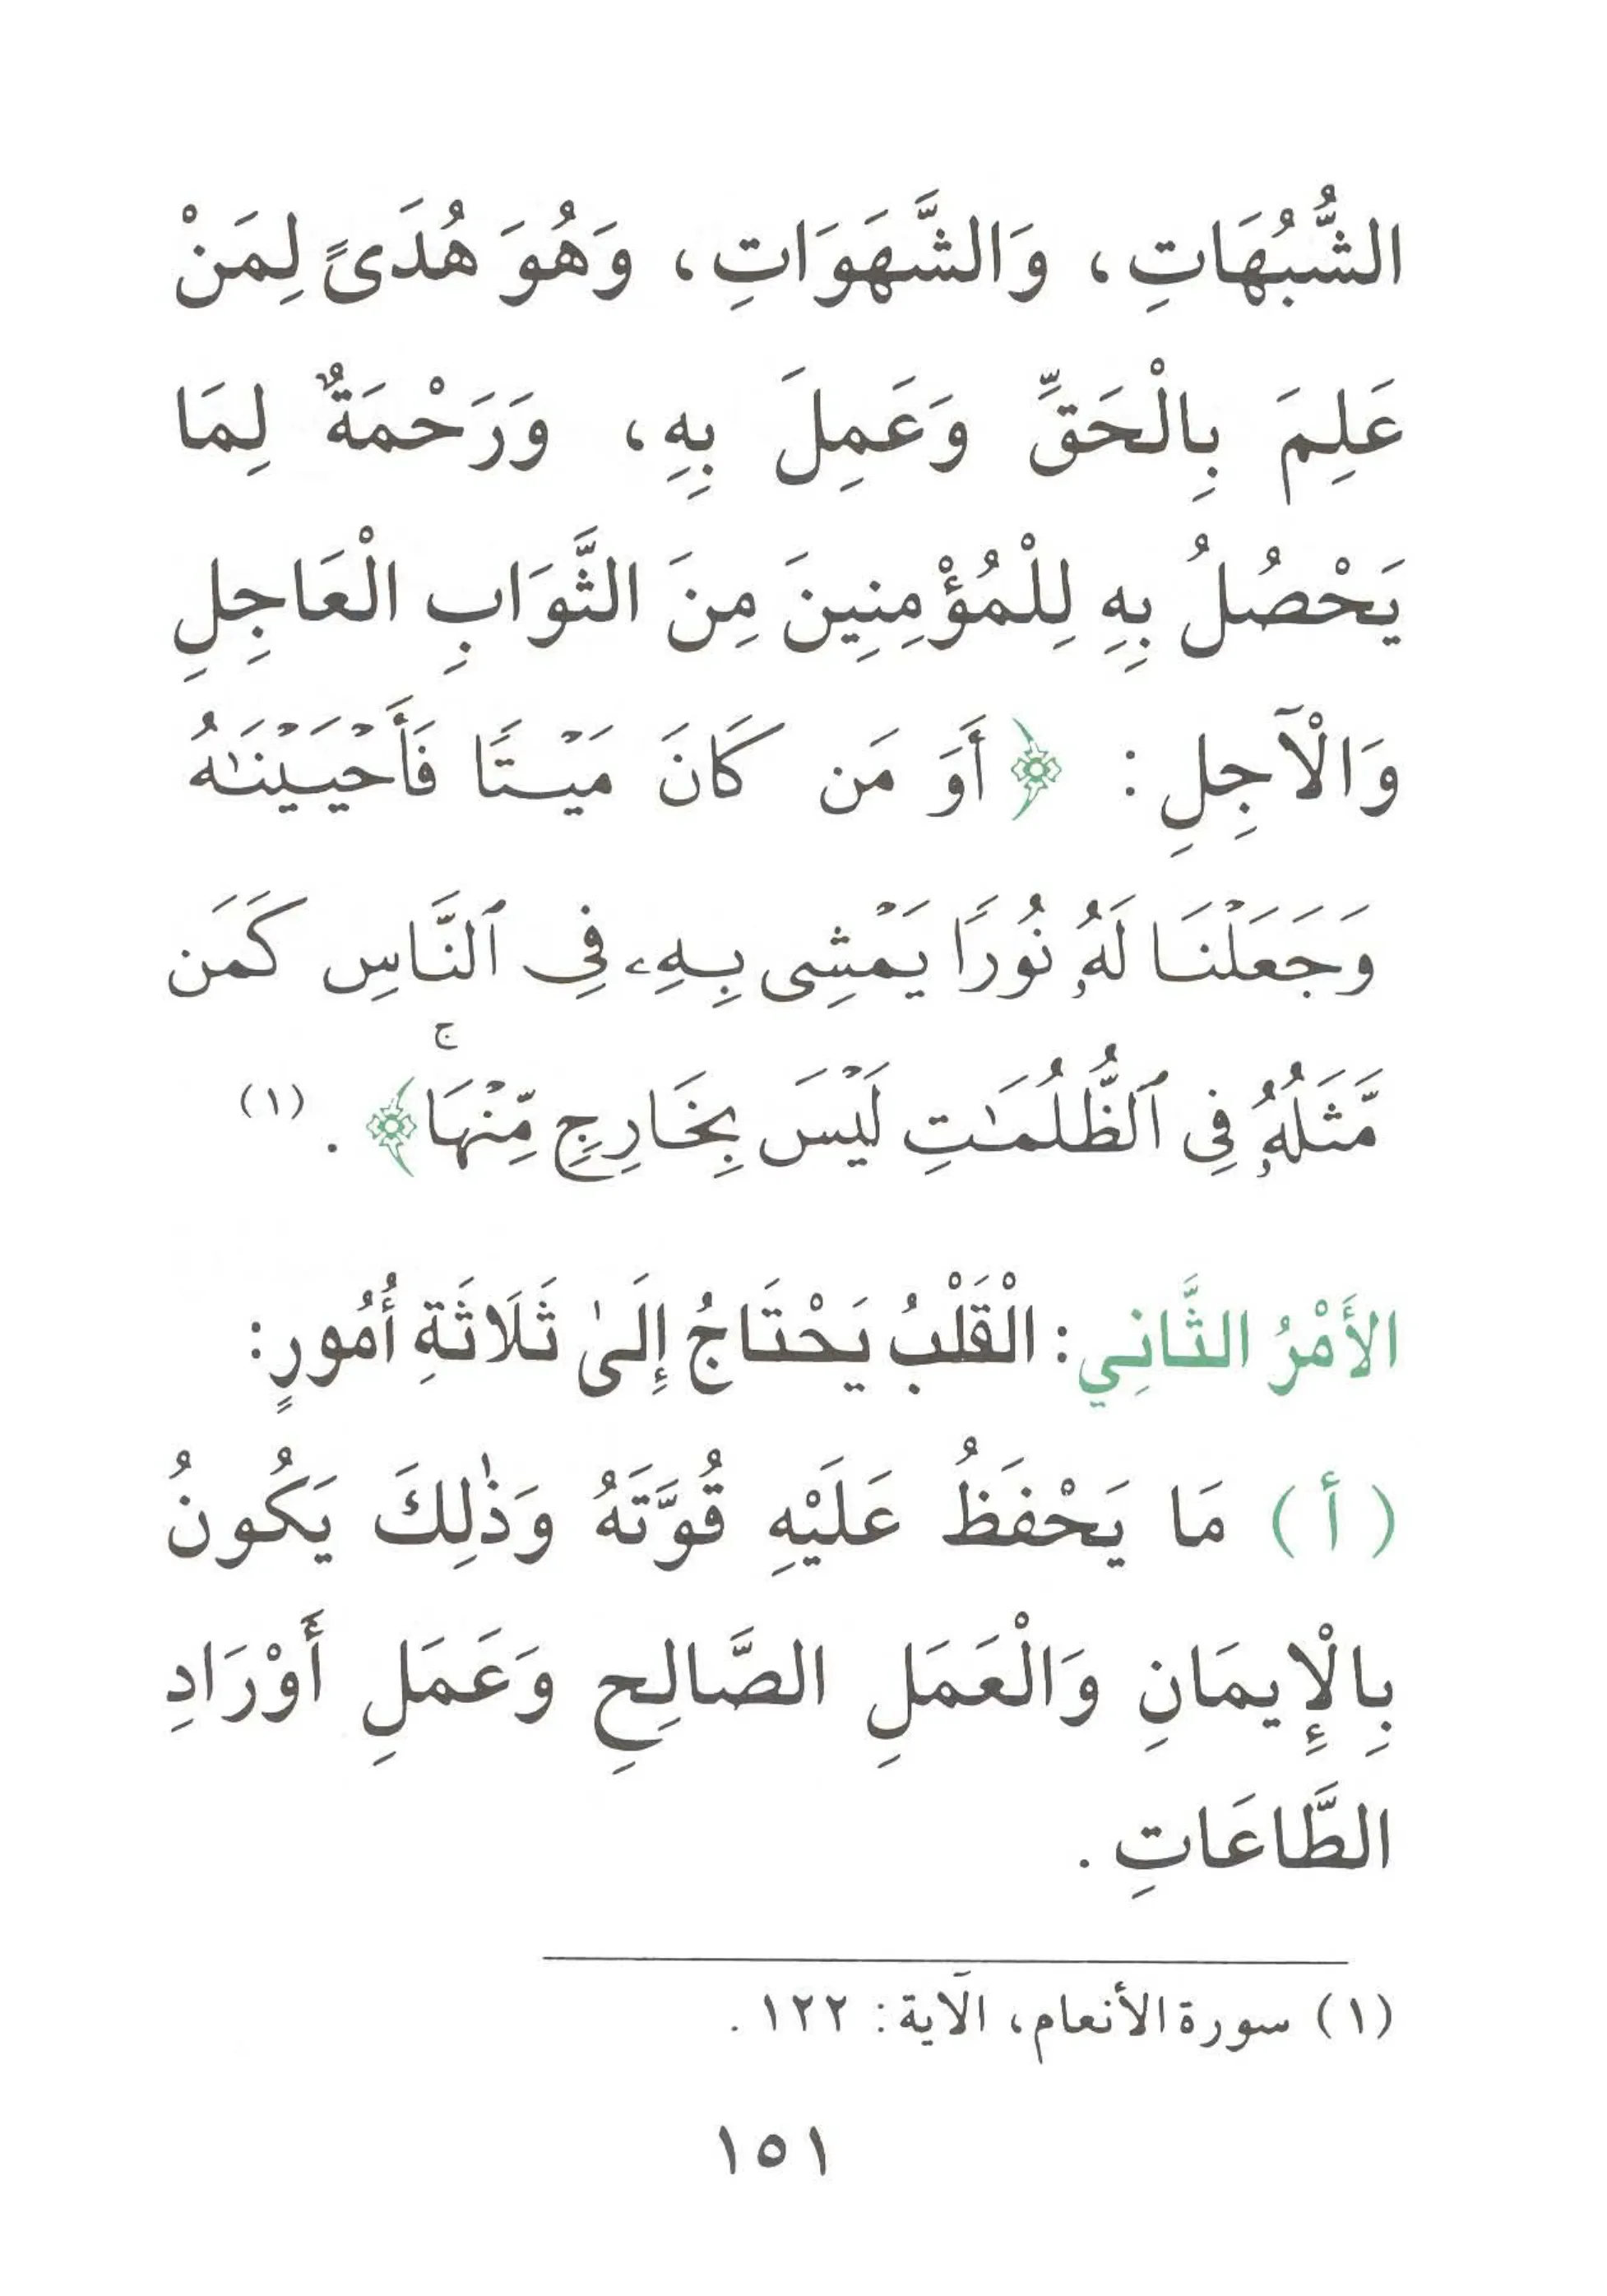 الشُّبُهَاتِ، وَالشَّهَوَاتِ، وَهُوَ هُدَىً لِمَنْ
عَلِمَ بِالْحَقِّ وَعَمِلَ بِهِ، وَرَحْمَةٌ لِمَا
يَحْصُلُ بِهِ لِلْمُؤْمِنِينَ مِنَ الثَّوَابِ الْعَاجِلِ
وَالْآجِلِ: ﴿أَوَ مَن كَانَ مَيْتًا فَأَحْيَيْنَٰهُ
وَجَعَلْنَا لَهُۥ نُورًا يَمْشِى بِهِۦ فِى ٱلنَّاسِ كَمَن
مَّثَلُهُۥ فِى ٱلظُّلُمَٰتِ لَيْسَ بِخَارِجٍ مِّنْهَا ۚ﴾. (١)
الأَمْرُ الثَّانِي: الْقَلْبُ يَحْتَاجُ إِلَىٰ ثَلَاثَةِ أُمُورٍ:
(أ) مَا يَحْفَظُ عَلَيْهِ قُوَّتَهُ وَذٰلِكَ يَكُونُ
بِالْإِيمَانِ وَالْعَمَلِ الصَّالِحِ وَعَمَلِ أَوْرَادِ
الطَّاعَاتِ.
(١) سورة الأنعام، الآية: ١٢٢.
١٥١